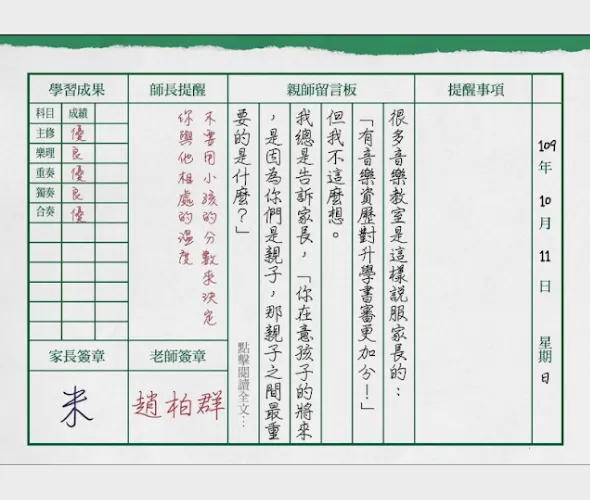 109年10月11日 星期日
提醒事項
親師留言板
很多音樂教室是這樣說服家長的：
「有音樂資歷對升學書審更加分！」
但我不這麼想。
我總是告訴家長，「你在意孩子的將來
，是因為你們是親子，那親子之間最重
要的是什麼？」
點擊閱讀全文…
師長提醒
不要用小孩的分數來決定
你與他相處的溫度
老師簽章
趙柏群
學習成果
科目 成績
主修 優
樂理 良
重奏 優
獨奏 良
合奏 優
家長簽章
米